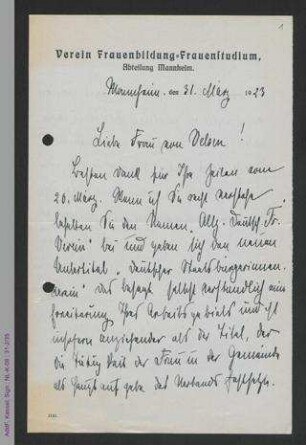 1
Verein Frauenbildung-Frauenstudium,
Abteilung Mannheim.
Mannheim, den 31. März 1923
Liebe Frau von Velsen!
Besten Dank für Ihre Zeilen vom
20. März. Wenn ich Sie recht verstehe,
behalten Sie den Namen „Allg. Deutsch. Fr.
Verein" bei und geben sich den neuen
Untertitel „Deutscher Staatsbürgerinnen-
verein" das besagt selbstverständlich eine
Erweiterung Ihres Arbeitsgebiets und ist
insofern anziehender als der Titel, der
die Tätigkeit der Frau in der Gemeinde
als Hauptaufgabe des Verbands festsetzte.
AddF, Kassel, Sign.: NL-K-08 ; 31-2/35